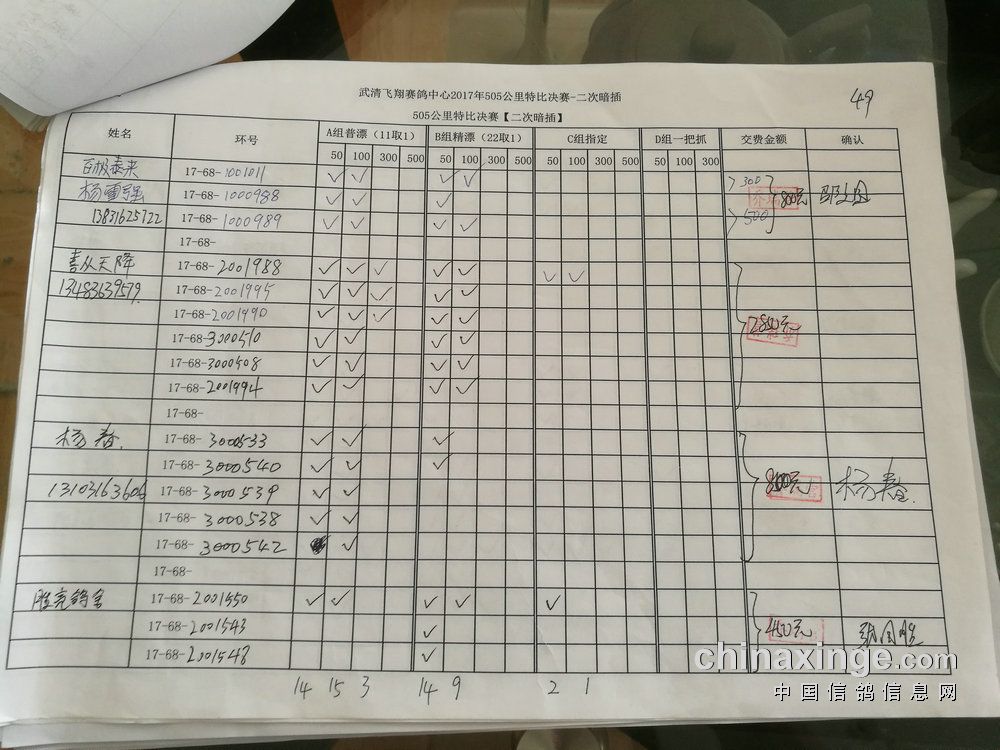 武清飞翔赛鸽中心2017年505公里特比决赛-二次暗插
49
505公里特比决赛【二次暗插】
姓名 环号 A组普漂（11取1） B组精漂（22取1） C组指定 D组一把抓 交费金额 确认
50 100 300 500 50 100 300 500 50 100 300 500 50 100 300
百极泰来 17-68-1001011 ✓ ✓ ✓ ✓ 300
杨雪强 17-68-1000988 ✓ ✓ ✓ 800元
13831625722 17-68-1000989 ✓ ✓ ✓ ✓ 500
17-68-
喜从天降 17-68-2001988 ✓ ✓ ✓ ✓ ✓ ✓ ✓
13483639579 17-68-2001995 ✓ ✓ ✓ ✓ ✓
17-68-2001990 ✓ ✓ ✓ ✓ ✓
17-68-3000510 ✓ ✓ ✓ ✓ 2850元
17-68-3000508 ✓ ✓ ✓ ✓
17-68-2001994 ✓ ✓ ✓ ✓
17-68-
杨春 17-68-3000533 ✓ ✓ ✓
17-68-3000540 ✓ ✓ ✓
13103163606 17-68-3000539 ✓ ✓ 800元 杨春
17-68-3000538 ✓ ✓
17-68-3000542 ✓
17-68-
胜亮鸽舍 17-68-2001550 ✓ ✓ ✓ ✓ ✓
17-68-2001543 ✓ 450元
17-68-2001548 ✓
14 15 3 14 9 2 1
chinaxinge.com
中国信鸽信息网